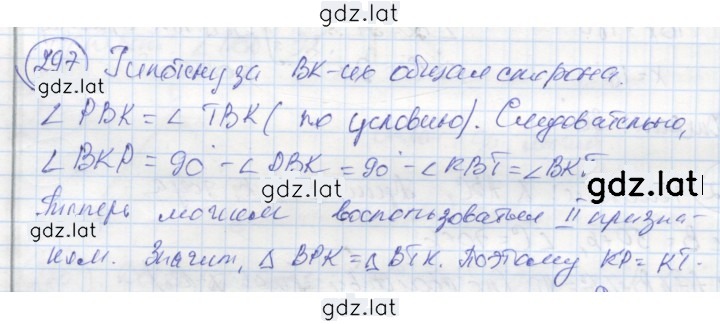 gdz.lat
297 Гипотенуза BK-их общая сторона.
gdz.lat
∠ PBK = ∠ TBK ( по условию). Следовательно,
∠ BKP = 90° - ∠ DBK = 90° - ∠ KBT = ∠ BKT
gdz.lat
Типперь можем воспользоваться II призна-
gdz.lat
ком. Значит, Δ BPK = Δ BTK. Поэтому KP = KT.
gdz.lat